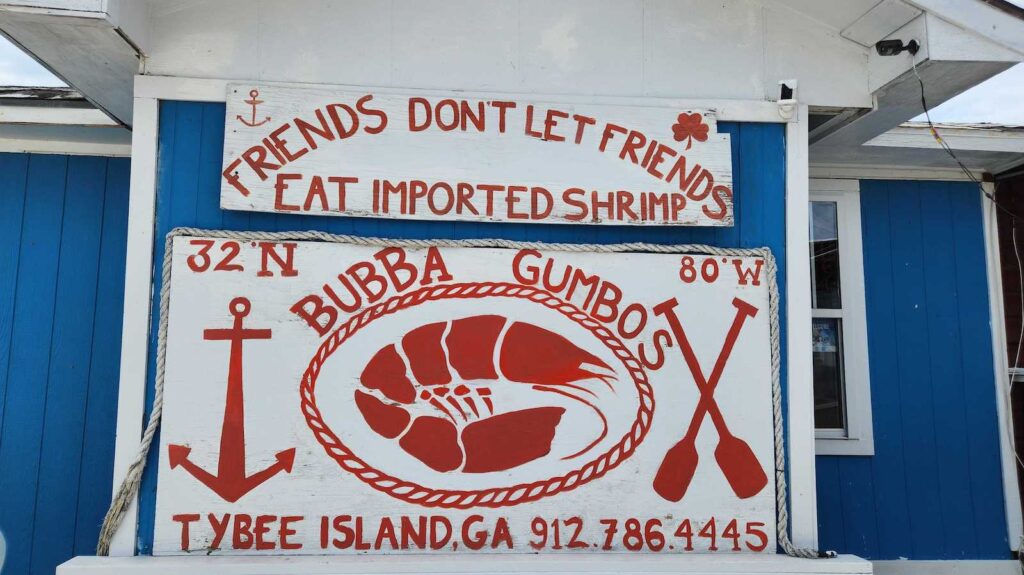 FRIENDS DON'T LET FRIENDS
EAT IMPORTED SHRIMP
32°N 80°W
BUBBA GUMBO'S
TYBEE ISLAND, GA 912.786.4445